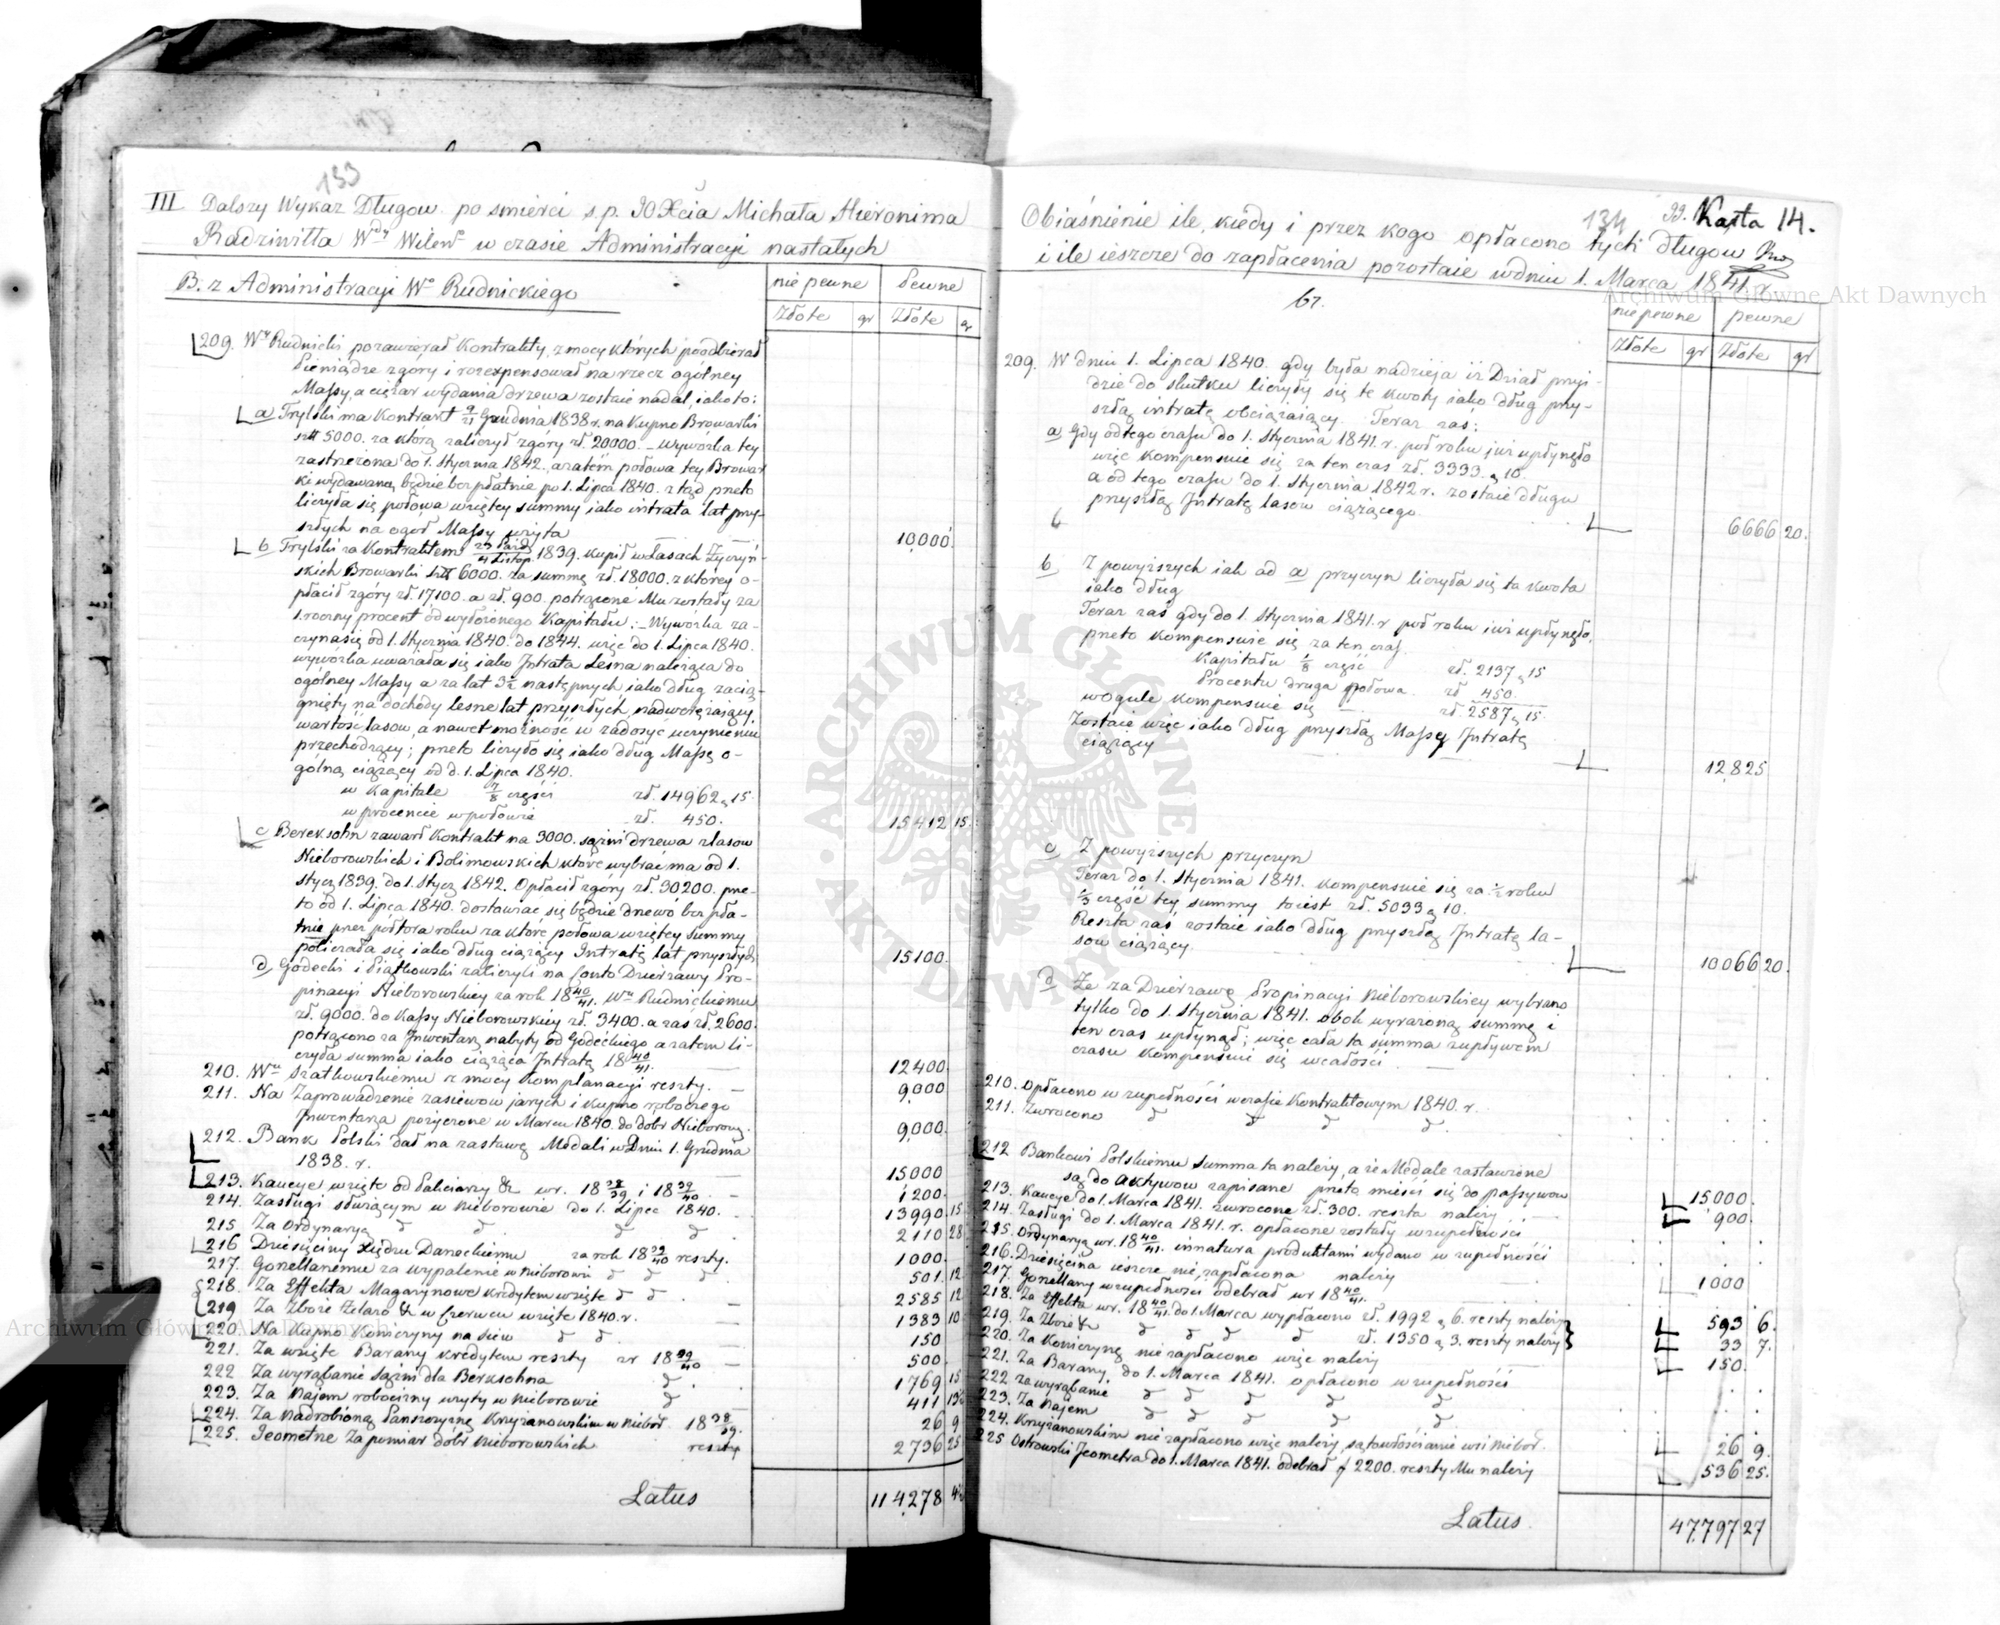 133
III Dalszy Wykaz Długow po smierci s.p. JOXcia Michała Hieronima
Radziwiłła Wdy Wilens w czasie Administracyi nastałych
B. z Administracyi Wo Rudnickiego
nie pewne Pewne
Złote gr Złote gr
209. Wy Rudnicki pozawierał Kontrakty, z mocy których poodbierał
Pieniądze zgóry i rozexpensował na rzecz ogólney
Massy, a ciężar wydania drzewa zostaie nadal, iako to:
a Trylski ma Kontrakt 9/21 Grudnia 1838 r. na Kupno Browarki
5000. za którą zaliczył zgóry zł. 20000. – wywózka tey
zastrzeżona do 1. Stycznia 1842., a zatem połowa tey Browar
ki wydawaną będzie bezpłatnie po 1. Lipca 1840. ztąd przeto
liczyła się połowa wziętey summy iako intrata lat przy-
szłych na ogół Massy użyta 10,000.
b Trylski za Kontraktem 23 Paźdz/4 Listop. 1839. kupił w Lasach Życzyń-
skich Browarki 6000. za summę zł. 18000. z którey o-
płacił zgóry zł. 17,100. a zł. 900. potrącone Mu zostały za
1. roczny procent od wyłożonego Kapitału: – Wywózka za-
czyna się od 1. Stycznia 1840. do 1844. więc do 1. Lipca 1840.
wywózka uważała się iako Intrata Lesna należąca do
ogólney Massy a za lat 3½ następnych iako dług zacią-
gnięty na dochody lesne lat przyszłych, nadwerężaiący
wartość lasow, a nawet możność w zadosyć uczynieniu
przechodzący; przeto liczyło się iako dług Massę o-
gólną ciążący od d. 1. Lipca 1840.
w Kapitale 7/8 części zł. 14962 „ 15
w procencie w połowie zł. 450. 15412 15.
c Bereksohn zawarł Kontrakt na 3000. sążni drzewa z lasow
Nieborowskich i Bolimowskich które wybrać ma od 1.
Stycz 1839. do 1. Stycz 1842. Opłacił zgóry zł. 30200. prze-
to od 1. Lipca 1840. dostawiać się będzie drzewo bezpła-
tnie przez półtora roku za które połowa wziętey Summy
policzała się iako dług ciążący Intratę lat przyszłych 15100.
d Godecki i Piątkowski zaliczyli na Conto Dzierzawy Pro-
pinacyi Nieborowskiey za rok 1840/41. Wu Rudnickiemu
zł. 9000. do Kassy Nieborowskiey zł. 3400. a zaś zł. 2600.
potrącono za Inwentarz nabyty od Godeckiego a zatem li-
czyła summa iako ciążąca Intratę 1840/41. 12400.
210. Wu Szatkowskiemu z mocy Komplanacyi reszty. 9,000
211. Na Zaprowadzenie zasiewow jarych i Kupno roboczego
Inwentarza pożyczone w Marcu 1840. do dobr Nieborow. 9,000.
212. Bank Polski dał na zastawę Medali w Dniu 1. Grudnia
1838. r. 15000
213. Kaucye wzięte od Paliciarzy & wr. 1838/39 i 1839/40. 1200.
214. Zasługi służącym w Nieborowie do 1. Lipca 1840. 13990 15
215. Za Ordynaryą d d. d d 2110 28
216 Dziesięciny Xiędzu Daneckiemu za rok 1839/40 reszty. 1000.
217. Gorzellanemu za wypalenie w Nieborowie d d d 501. 12
218. Za Effekta Magazynowe kredytem wzięte d d. 2585 12
219 Za Zboże Żelazo & w Czerwcu wzięte 1840. r. 1383 10
220. Na Kupno Koniczyny na siew d d. 150
221. Za wzięte Barany kredytem reszty zr 1839/40 500.
222 Za wyrąbanie sążni dla Berksohna d. 1769 15
223. Za Najem robocizny użyty w Nieborowie d 411 13½
224. Za nadrobioną Panszczyznę Krzyżanowskim w Niebor. 1838/39. 26 9
225. Jeometrze Za pomiar dóbr Nieborowskich reszty 2736 25
Latus 114,278 4½
Obiaśnienie ile, kiedy i przez kogo opłacono tych długow
134 99. Karta 14.
i ile ieszcze do zapłacenia pozostaie w dniu 1. Marca 1841 r.
br.
nie pewne pewne
Złote gr Złote gr
209. W dniu 1. Lipca 1840. gdy była nadzieja iż Dział przyi-
dzie do skutku liczyły się te kwoty iako dług przy-
szłą intratę obciążaiący. Teraz zaś:
a Gdy od tego czasu do 1. Stycznia 1841. r. poł roku już upłynęło
więc kompensuie się za ten czas zł. 3333 „ 10
a od tego czasu do 1. Stycznia 1842 r. zostaie długu
przyszłą Intratę lasow ciążącego 6666 20.
b Z powyższych iak ad a przyczyn liczyła się ta kwota
iako dług
Teraz zaś gdy do 1. Stycznia 1841. r poł roku już upłynęło,
przeto kompensuie się za ten czas.
Kapitału 1/8 część zł. 2137 „ 15
Procentu druga połowa. zł 450.
wogule kompensuie się zł. 2587 „ 15
Zostaie więc iako dług przyszłą Massy Intratę
ciążący 12,825
c Z powyższych przyczyn
Teraz do 1. Stycznia 1841. kompensuie się za ½ roku
1/3 część tey summy to iest zł. 5033 „ 10.
Reszta zaś zostaie iako dług przyszłą Intratę la-
sow ciążący. 10066 20.
d Że za Dzierzawę Propinacyi Nieborowskiey wybrano
tylko do 1. Stycznia 1841. obok wyrażoną summę i
ten czas upłynął; więc cała ta summa z upływem
czasu kompensuie się wcałości
210. Opłacono w zupełności w czasie Kontraktowym 1840. r.
211. Zwrocono d d d d.
212 Bankowi Polskiemu summa ta należy, a że Medale zastawione
są do Aktywow zapisane przeto mieści się do passywow 15000.
213. Kaucye do 1. Marca 1841. zwrocone zł. 300. reszta należy 900
214. Zasługi do 1. Marca 1841. r. opłacone zostały w zupełności
215. Ordynaryą wr. 1840/41. innatura produktami wydano w zupełności
216. Dziesięcina ieszcze nie zapłacona należy 1000
217. Gorzellany w zupełności odebrał wr 1840/41.
218. Za Effekta wr. 1840/41. do 1. Marca wypłacono zł. 1992 „ 6. reszty należy 593 6.
219. Za Zboże & d d d d zł. 1350 „ 3. reszty należy 33 7.
220. Za Koniczynę nie zapłacono więc należy 150.
221. Za Barany, do 1. Marca 1841. opłacono w zupełności
222 za wyrąbanie d d d d
223. Za Najem d d d d
224. Krzyżanowskim nie zapłacono więc należy, są to włościanie wsi Niebor. 26 9.
225 Ostrowski Jeometra do 1. Marca 1841. odebrał f 2200. reszty Mu należy 536 25.
Latus. 47,797 27
Archiwum Główne Akt Dawnych
Archiwum Główne Akt Dawnych
ARCHIWUM GŁÓWNE AKT DAWNYCH